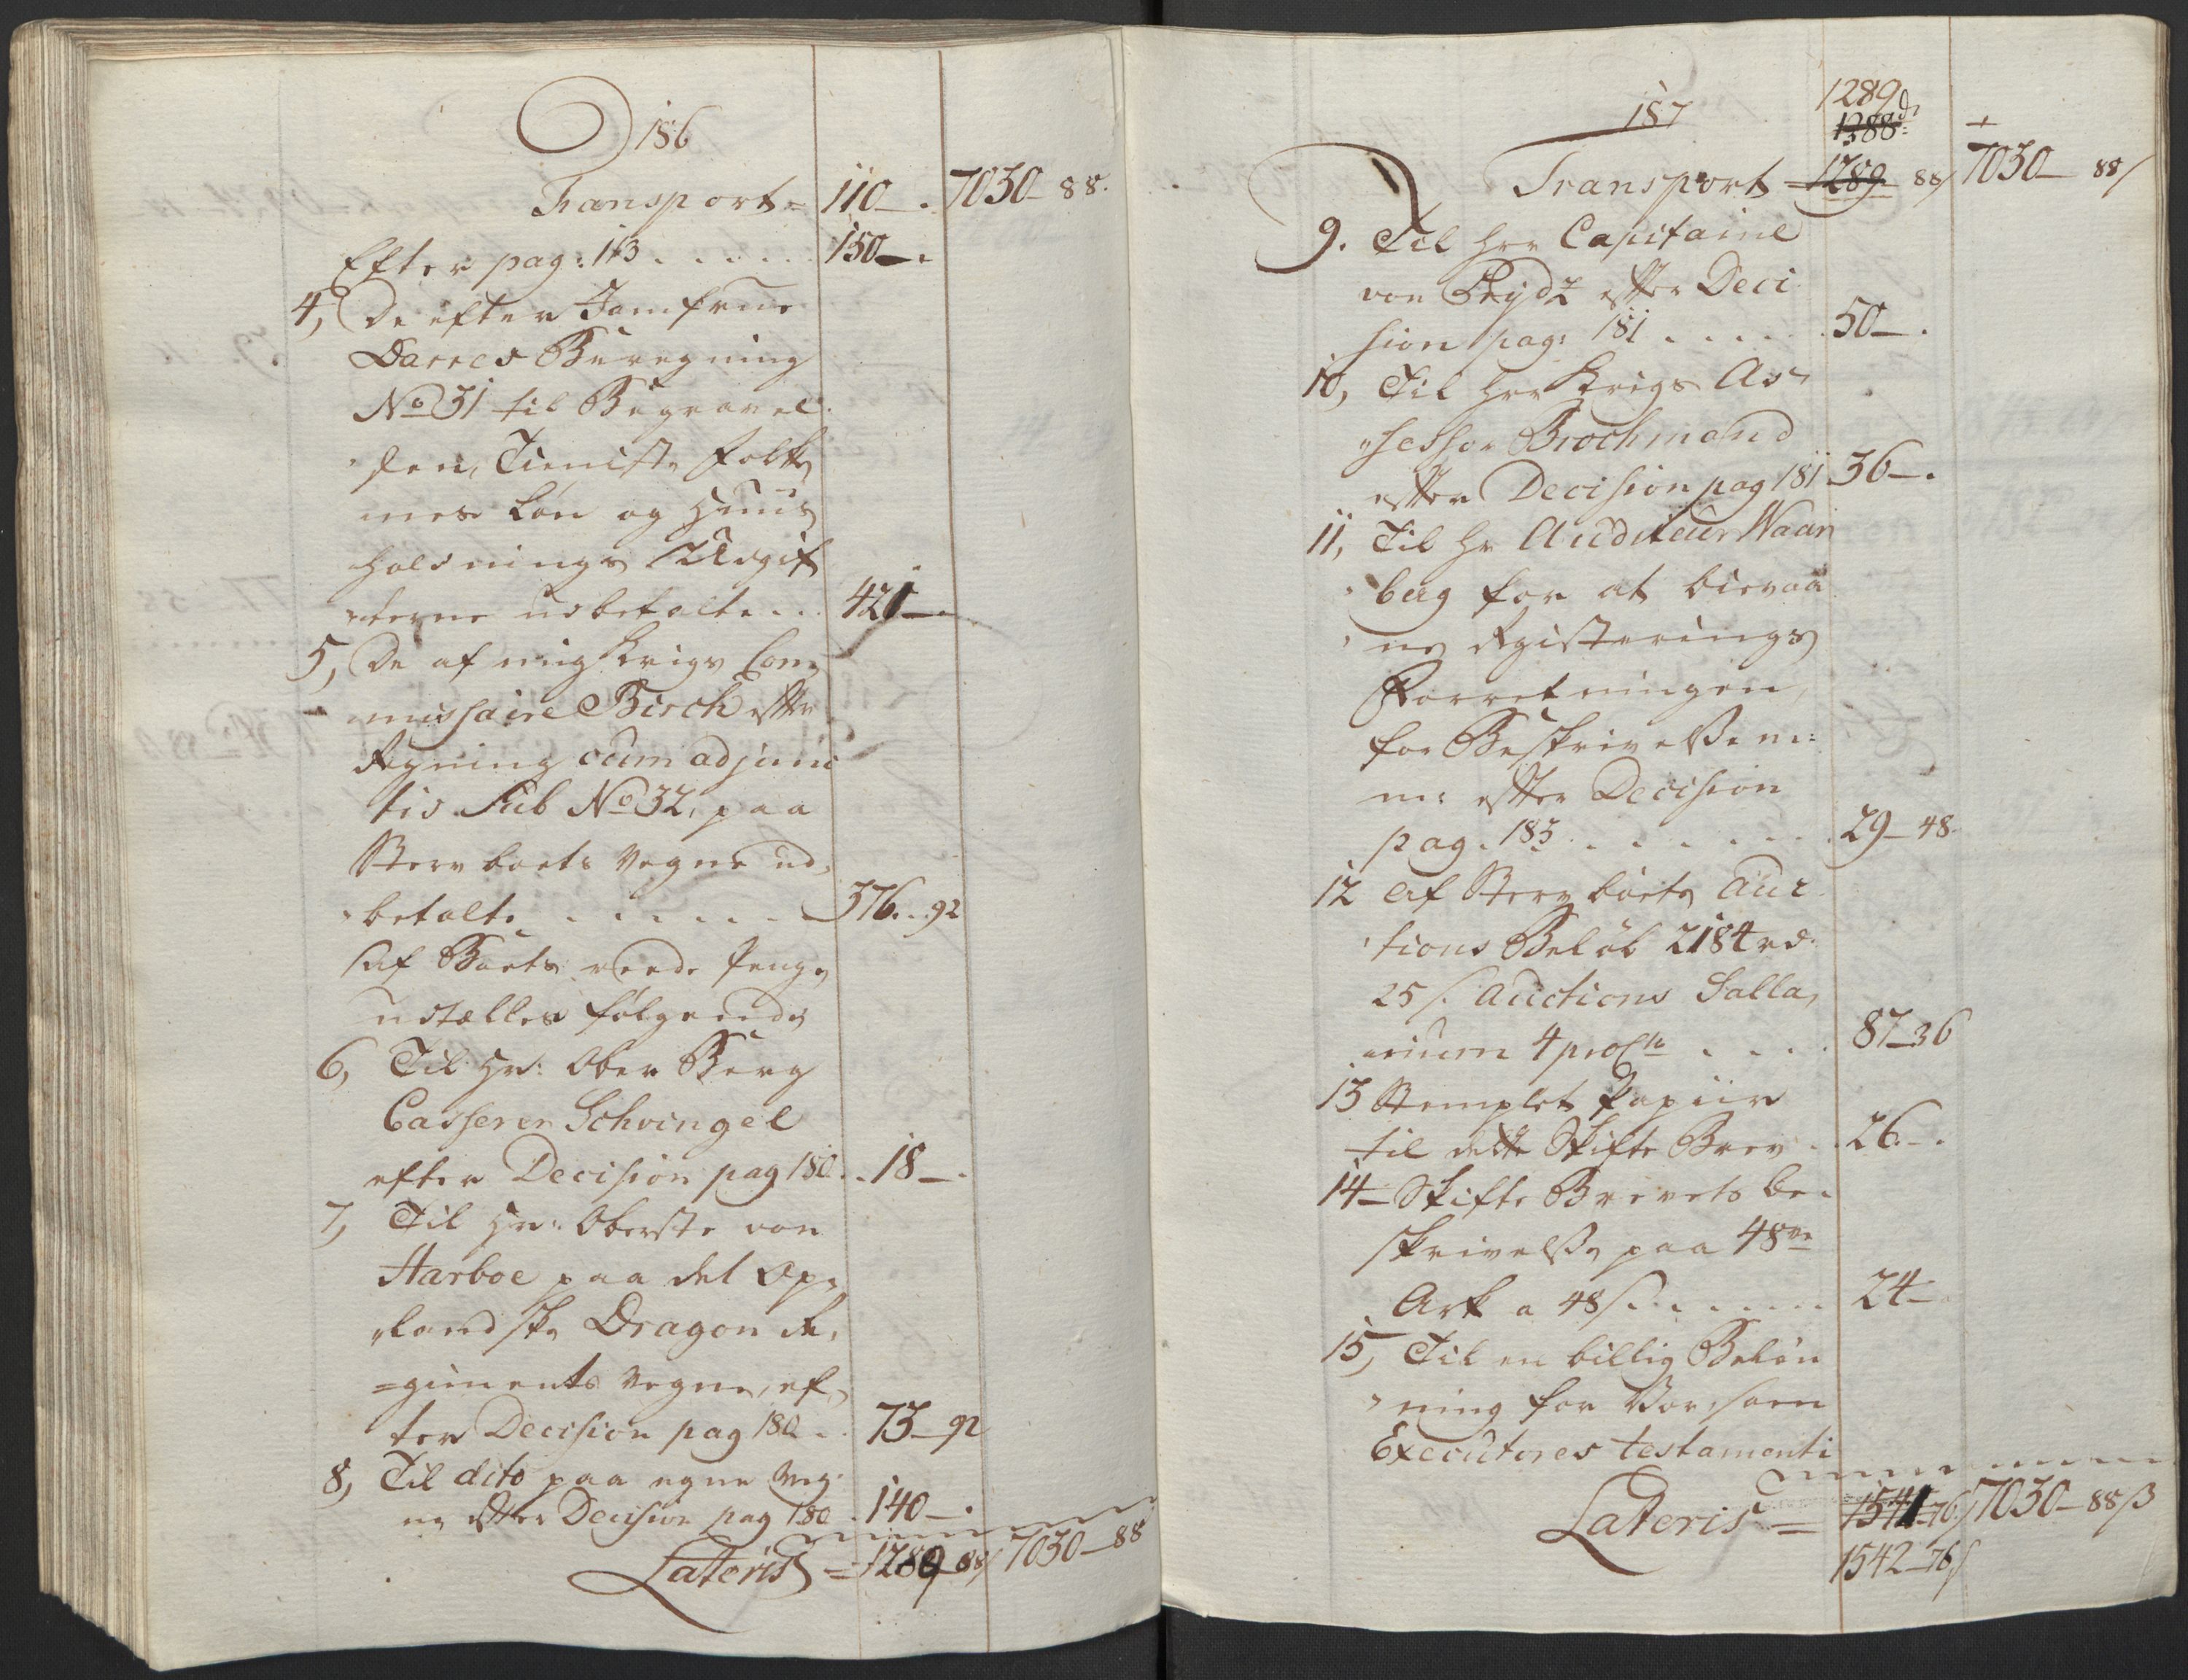 186
Transport = 110 - . 7030 - 88.
Efter pag: 113 . . . . . 150 - .
4, De efter Jomfrue
Darres Beregning
No 31 til Begravel
sen, Tieniste Folke
nes Løn og Huus
holdnings Udgif
terne udbetalte . . . 421 -
5, De af mig Krigs Com
missaire Birch efter
Regning cum adjunc
tis Sub No 32, paa
Sterv boets Vegne ud
betalte . . . . . . 376 . . 92
Af Boets reede Penge
udtælles følgende
6, Til Hr: Ober Berg
Casserer Schvingel
efter Decision pag 180 . . 18 - .
7, Til Hr: Oberste von
Harboe paa det Op
landske Dragon Re,
=giments Vegne, ef
ter Decision pag 180 . . 73 - 92
8, Til dito paa egne Veg
ne efter Decision pag 180 . 140 - .
Lateris = 1289 - 88 / 7030 - 88
187
1289
1388
Transport = 1289 88 / 7030 - 88 /
9. Til Herr Capitaine
von efter Deci
sion pag: 181 . . . . . 50 - .
10, Til Herr Krigs As
sessor Brochmand
efter Decision pag 181 36 - .
11, Til Hr Auditeur Waar
berg for at bievaa
ne Registerings
Forretningen,
for Beskrivelse m:
m: efter Decision
pag. 183 . . . . . . . 29 - 48.
12 Af Sterv boets Auc
tions Beløb 2184 rd:
25 s. Auctions Salla
rium 4 pro Cto . . . . 87 - 36
13 Stemplet Papiir
til dette Skifte Brev . . 26 . - .
14 - Skifte Brevets be
skrivelse paa 48 de
Ark a 48 s . . . . . . 24 -
15, Til en billig Beløn
ning for Vores som
Executores testamenti
Lateris = 1541 - 76 / 7030 - 88 ß
1542 - 76 /